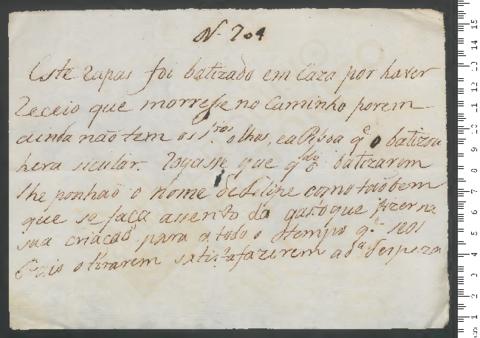 N. 704
Este Rapas foi batizado em Caza por haver
Receio que morresse no Caminho porem
ainda não tem os s.tos olhos, e a Pesoa q̃ o batizou
hera sicular. Rogasse que qdo batizarem
lhe ponhão o nome de Felipe como tãobem
que se faça assento do gasto que fizer na
sua criação para a todo o tempo q̃ seos
Pais o tirarem satisfazerem a d.a despeza